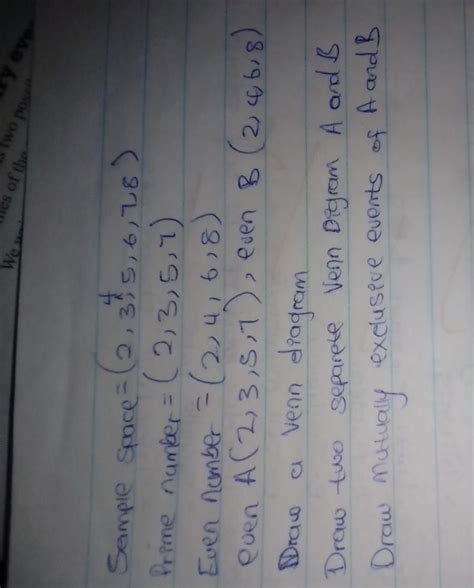 Sample space = (2, 3, 4, 5, 6, 7, 8)
Prime number = (2, 3, 5, 7)
Even number = (2, 4, 6, 8)
even A (2, 3, 5, 7), even B (2, 4, 6, 8)
Draw a venn diagram
Draw two separete Venn Digram A and B
Draw mutually exclusive events of A and B